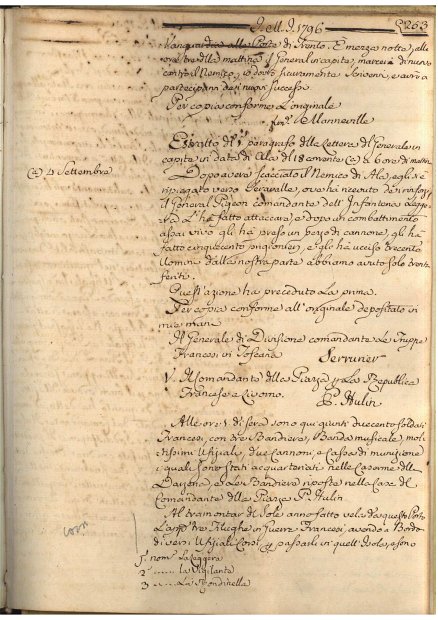 Nell' A. 1796 263
Vanguardia alle Porte di Trento. E mezza notte, alle
ore tre della mattina il General in capite, marcerà di nuovo
contro il Nemico, io dovrò sicuramente
parteciparvi dei nuovi successi.
Per copia conforme l'originale
Manneville
Estratto del 1° paragrafo della Lettera del Generale in
capite in data di Ala del 18 corrente (a) a 6 ore di mattina
(a) 4 Settembre
Dopo aver scacciato il Nemico di Ala, egli si è
ripiegato verso Seravalle, ove ha ricevuto dei rinforzi
il General Pigeon comandante dell' Infanteria Leggie
ra L'ha fatto attaccare, e dopo un combattimento
assai vivo gli ha preso un pezzo di cannone, gli ha
fatto cinquecento prigionieri, e gli ha ucciso trecento
Uomini dalla nostra parte abbiamo avuto solo trenta
feriti.
Quest'azione ha preceduto la prima.
Per copia conforme all' originale depositato in
mie mani
Il Generale di Divisione comandante le Truppe
Francesi in Toscana Serrurier
V. Il Comandante della Piazza per la Republica
Francese a Livorno. P. Hulin
Alle ore 1 di sera sono qui giunti duecento soldati
Francesi, con tre Bandiere, Banda musicale, mol
tissimi Ufiziali, due Cannoni, e Cassa di munizione
i quali sono stati acquartierati nelle Caserme della
e le Bandiere riposte nella Casa del
Comandante della Piazza P. Hulin
Al tramontar del Sole anno fatto vela da questo Porto
tre in Guerra Francesi, avendo a Bordo
diversi Ufiziali Corsi, per passarli in quell' Isola, e sono
Corsi
1° nom. La Leggera
2 La Vigilante
3 La Rondinella